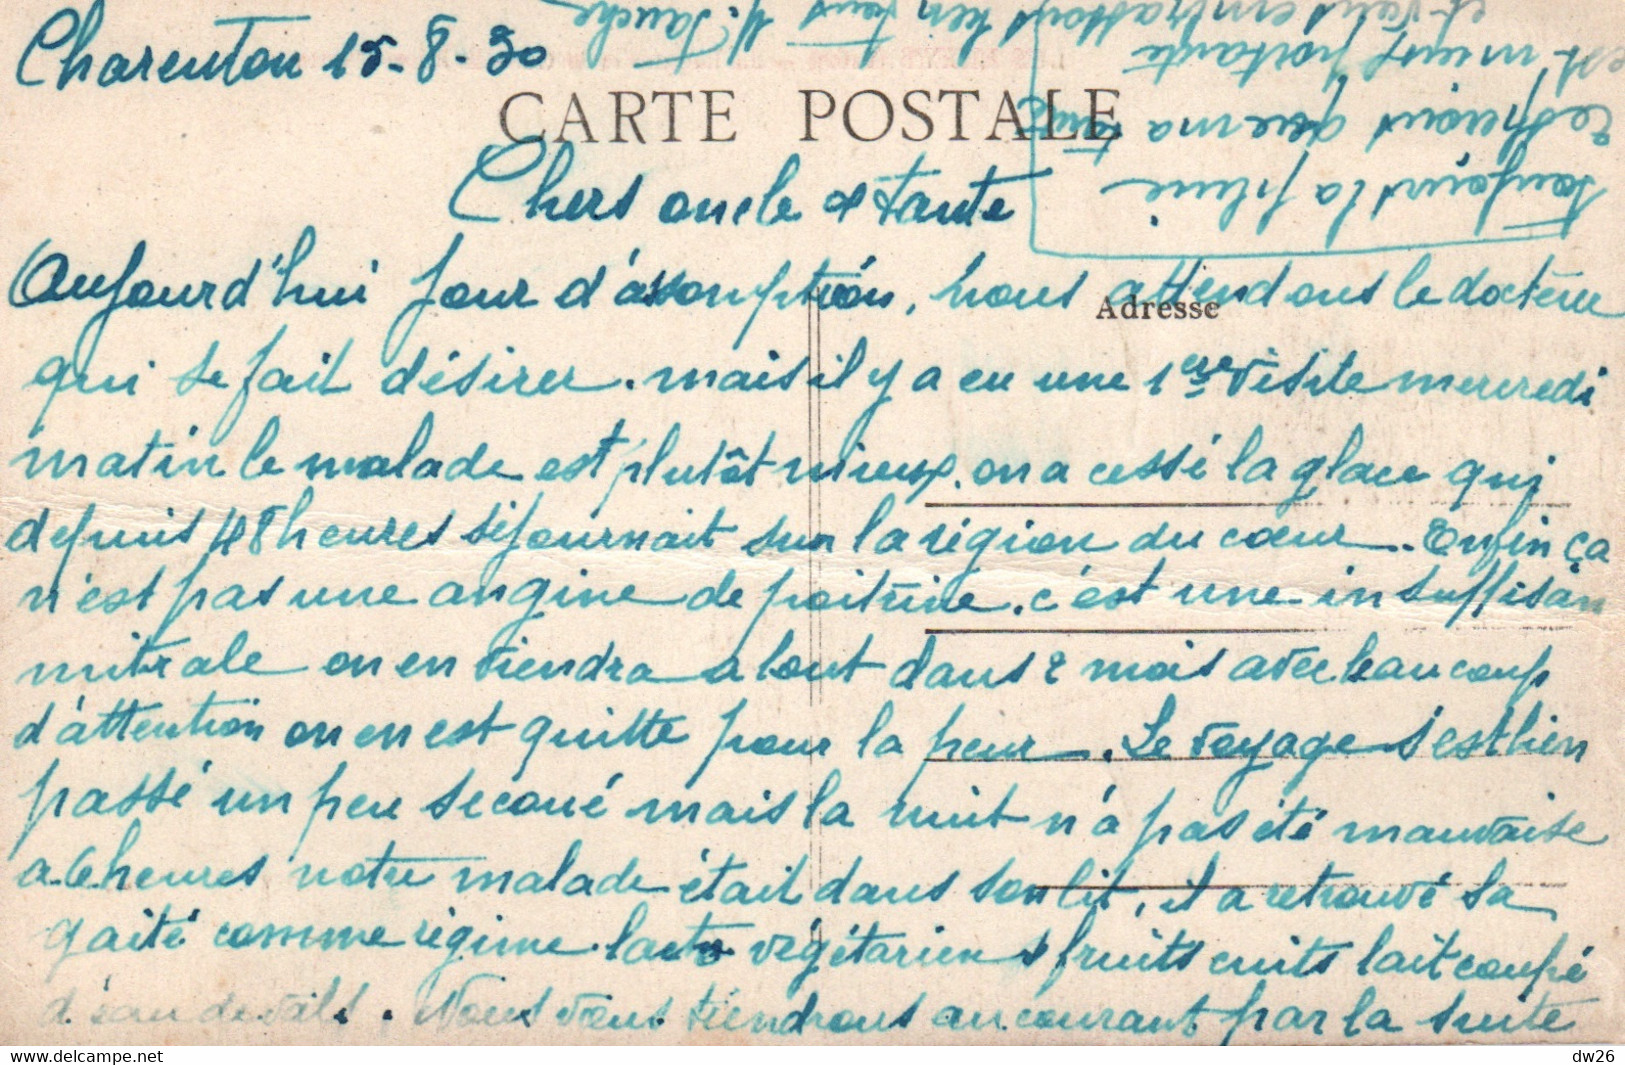 Charenton 15-8-30
CARTE POSTALE
Chers oncle & tante
Adresse
Aujourd'hui jour d'assomption, nous attendons le docteur
qui se fait désirer. mais il y a eu une 1ere visite mercredi
matin le malade est plutôt mieux. on a cessé la glace qui
depuis 48 heures séjournait sur la région du cœur. Enfin ça
n'est pas une angine de poitrine. c'est une insuffisan
mitrale on en viendra a bout dans 2 mois avec beaucoup
d'attention on en est quitte pour la peur. Le voyage s'est bien
passé un peu secoué mais la nuit n'a pas été mauvaise
a 6 heures notre malade était dans son lit, il a retrouvé sa
gaité comme régime lacto végétarien & fruits cuits lait coupé
d'eau de vals. Nous vous tiendrons au courant par la suite
Toujours la pluie
Espérons que ma tante
est mieux portante
et vous embrassons bien tous
dw26
www.delcampe.net